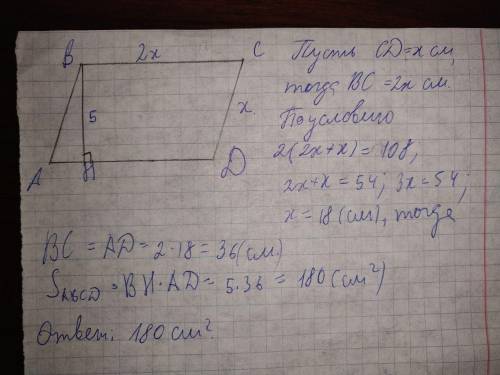 B 2x C
5 x
A H D
Пусть CD=x см,
тогда BC=2x см.
По условию
2(2x+x)=108,
2x+x=54; 3x=54;
x=18(см), тогда
BC=AD=2·18=36(см.)
S ABCD=BH·AD=5·36=180(см²)
Ответ: 180 см².